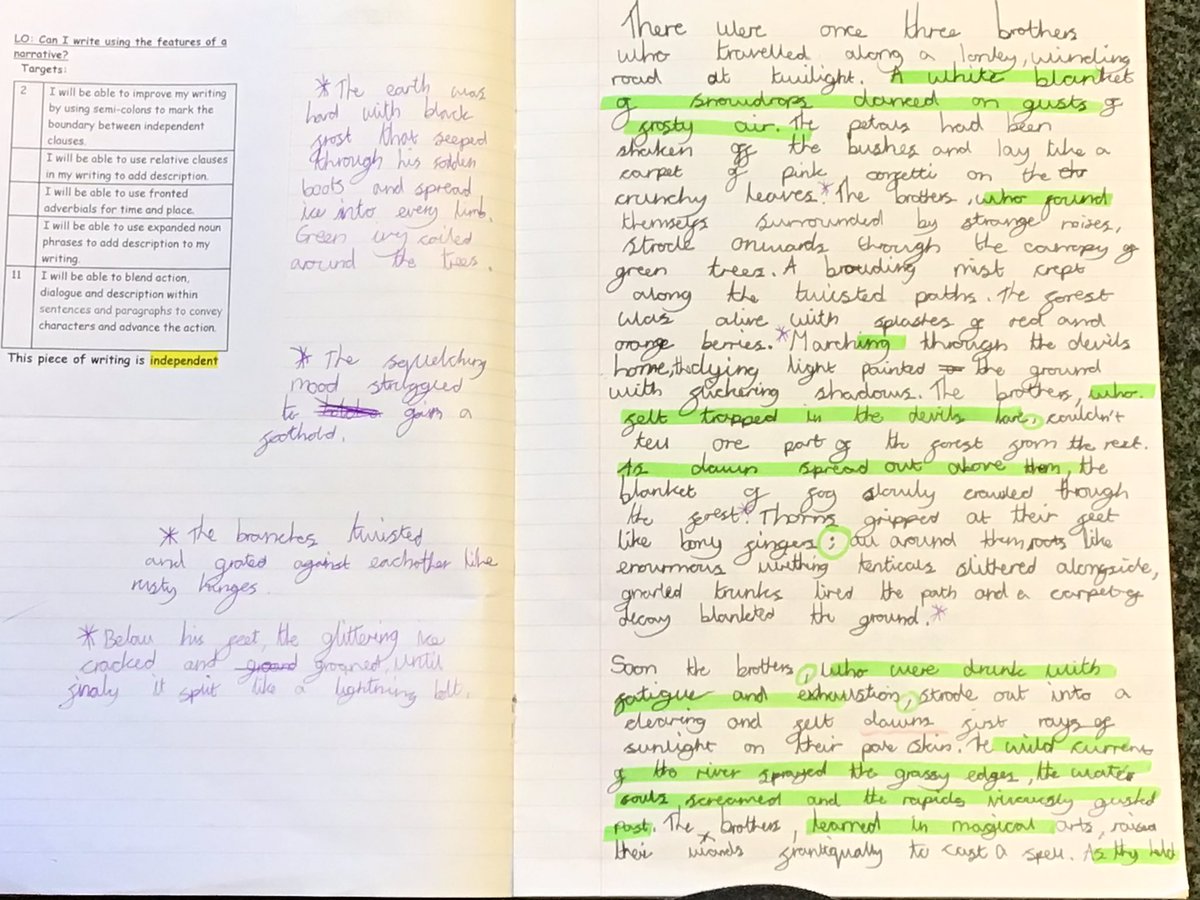 LO: Can I write using the features of a
narrative?
Targets:
2 I will be able to improve my writing
by using semi-colons to mark the
boundary between independent
clauses.
I will be able to use relative clauses
in my writing to add description.
I will be able to use fronted
adverbials for time and place.
I will be able to use expanded noun
phrases to add description to my
writing.
11 I will be able to blend action,
dialogue and description within
sentences and paragraphs to convey
characters and advance the action.
This piece of writing is independent
* The earth was
hard with black
frost that seeped
through his sodden
boots and spread
ice into every limb.
Green ivy coiled
around the trees.
* The squelching
mood struggled
to gain a
foothold.
* The branches twisted
and grated against eachother like
rusty hinges.
* Below his feet, the glittering ice
cracked and groaned, until
finaly it split like a lightning bolt.
There were once three brothers
who travelled along a lonley, winding
road at twilight. A white blanket
of snowdrops danced on gusts of
frosty air. The petals had been
shaken off the bushes and lay like a
carpet of pink confetti on the
crunchy leaves.* The brothers, who found
themselfs surrounded by strange noises,
strode onwards through the canropy of
green trees. A brouding mist crept
along the twisted paths. The forest
was alive with splashes of red and
orange berries.* Marching through the devils
home, the dying light painted the ground
with flickering shadows. The brothers, who
felt trapped in the devils lare, couldn't
tell one part of the forest from the rest.
As dawn spread out above them, the
blanket of fog slowly crowded through
the forest.* Thorns gripped at their feet
like bony fingers; all around them, roots like
enourmous writhing tenticals slithered alongside,
gnarled trunks lined the path and a carpet of
decay blanketed the ground.*
Soon the brothers, who were drunk with
fatigue and exhaustion, strode out into a
clearing and felt dawns first rays of
sunlight on their pale skin. The wild current
of the river sprayed the grassy edges, the water
souls screamed and the rapids viscously gusted
past. The brothers, learned in magical arts, raised
their wands frantiqually to cast a spell. As they held